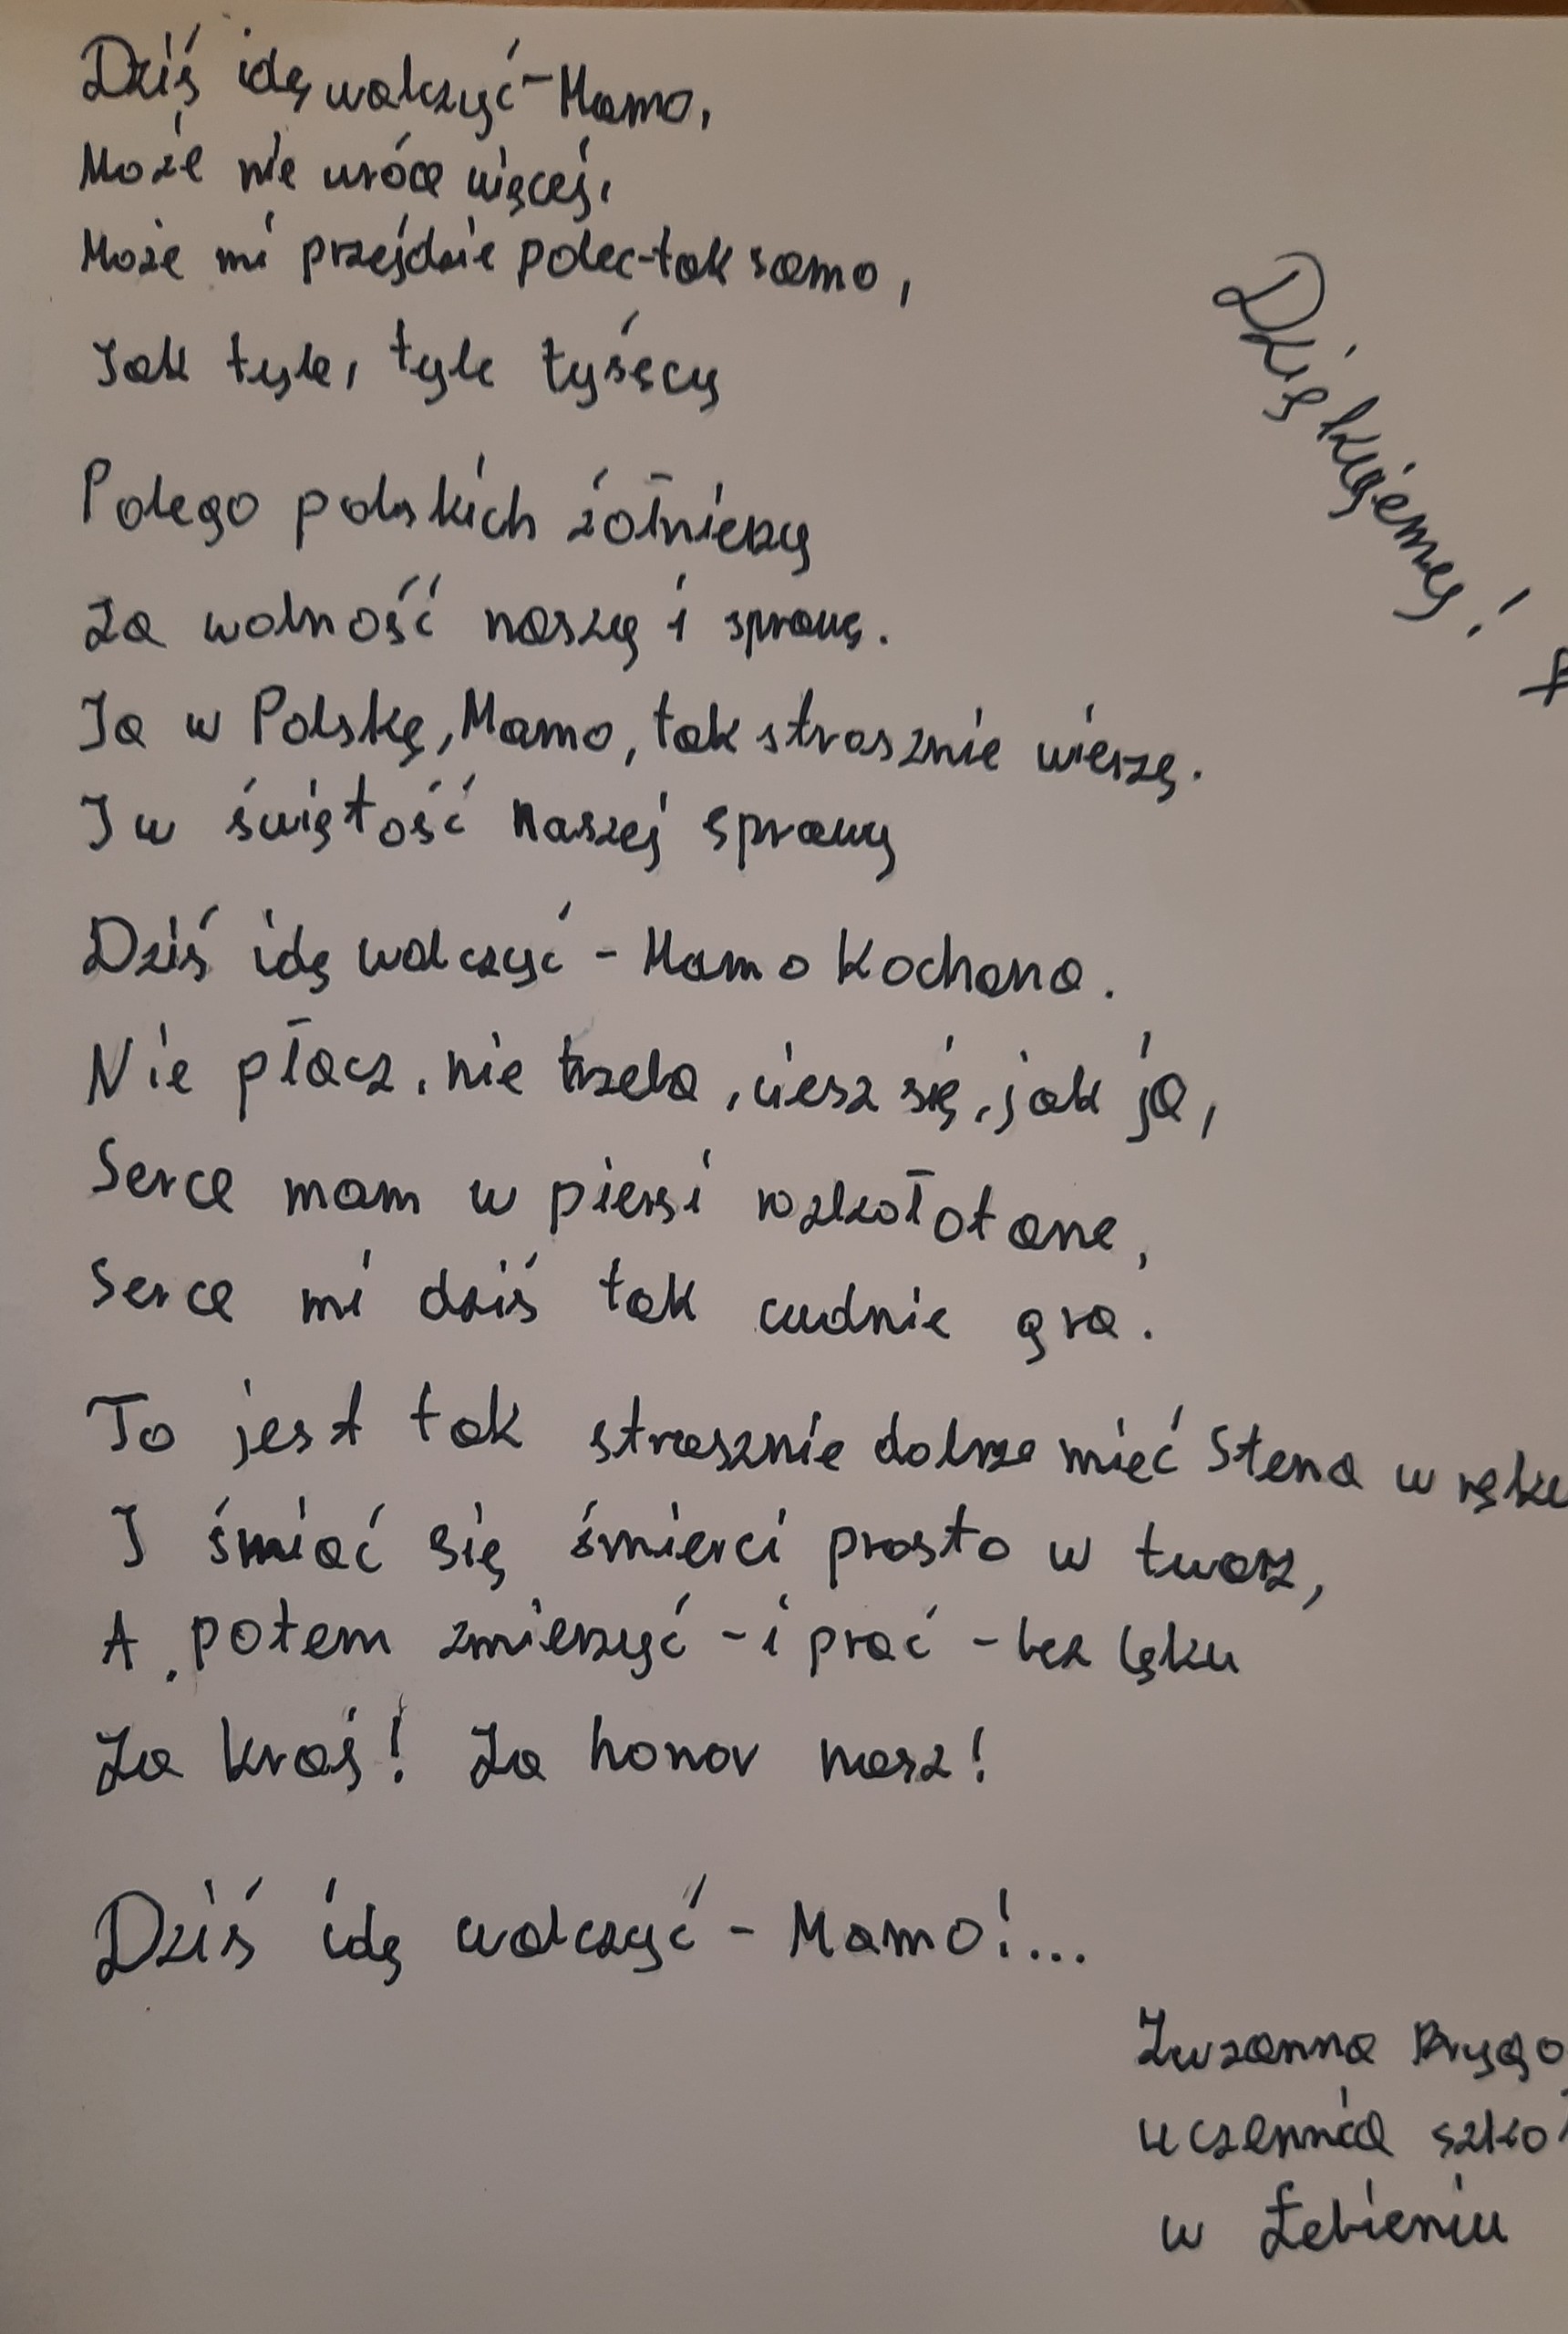 Dziś idę walczyć - Mamo,
Może nie wrócę więcej,
Może mi przejdzie polec - tak samo,
Jak tyle, tyle tysęcy
Polego polskich żołnierzy
Za wolność naszą i sprawę.
Ja w Polskę, Mamo, tak strasznie wierzę.
I w świętość naszej sprawy
Dziś idę walczyć - Mamo Kochana.
Nie płacz, nie trzeba, ciesz się, jak ja,
Serce mam w piersi rozkołotane,
Serce mi dziś tak cudnie gra.
To jest tak strasznie dobrze mieć Stena w ręku
I śmiać się śmierci prosto w twarz,
A potem zmierzyć - i prać - bez lęku
Za kraj! Za honor nasz!
Dziś idę walczyć - Mamo!...
Dziękujemy!
Zuzanna
uczennica
w Łebieniu